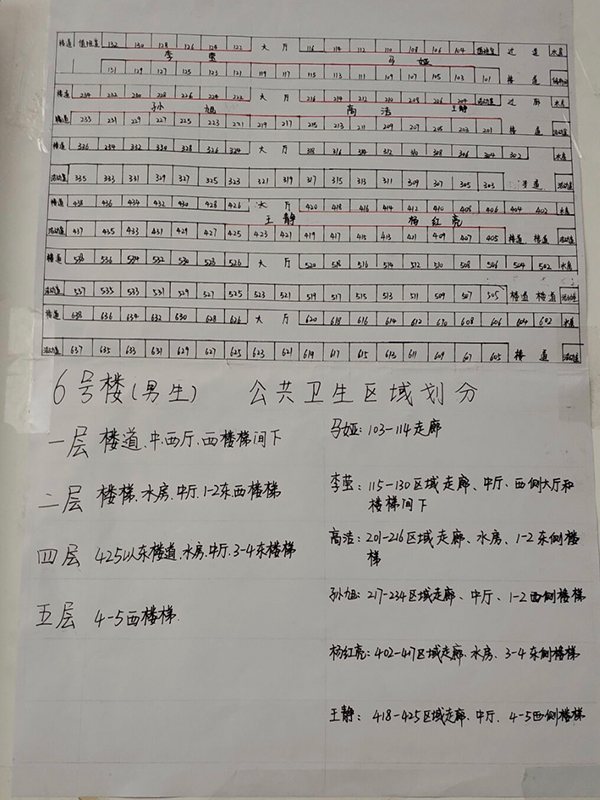 楼道 值班室 132 130 128 126 124 122 大厅 116 114 112 110 108 106 104 值班室 过道 水房
李莹 马娅
131 129 127 125 123 121 119 117 115 113 111 109 107 105 103 101 楼道
楼道 234 232 230 228 226 224 222 大厅 216 214 212 210 208 206 204 活动室 过廊 水房
孙旭 高洁 王静
楼道 233 231 229 227 225 223 221 219 217 215 213 211 209 207 205 203 201 楼道 活动室
楼道 336 334 332 330 328 326 324 大厅 318 316 314 312 310 308 306 304 302 水房
活动室 335 333 331 329 327 325 323 321 319 317 315 313 311 309 307 305 303 楼道 活动室
楼道 438 436 434 432 430 428 426 大厅 420 418 416 414 412 410 408 406 404 402 水房
王静 杨红亮
活动室 437 435 433 431 429 427 425 423 421 419 417 415 413 421 409 407 405 楼道 楼道 活动室
楼道 538 536 534 532 530 528 526 大厅 520 518 516 514 512 510 508 506 504 502 水房
活动室 537 535 533 531 529 527 525 523 521 519 517 515 513 511 509 507 505 楼道 楼道 活动室
楼道 638 636 634 632 630 628 626 大厅 620 618 616 614 612 610 608 606 604 602 水房
活动室 637 635 633 631 629 627 625 623 621 619 617 615 613 611 609 607 605 楼道 活动室
6号楼(男生) 公共卫生区域划分
一层 楼道、中、西厅、西楼梯间下
马娅:103-114走廊
二层 楼梯、水房、中厅、1-2东西楼梯
李莹:115-130区域走廊、中厅、西侧大厅和
楼梯间下
四层 425以东楼道、水房、中厅、3-4东楼梯
高洁:201-216区域走廊、水房、1-2东侧楼
梯
五层 4-5西楼梯.
孙旭:217-234区域走廊、中厅、1-2西侧楼梯
杨红亮:402-417区域走廊、水房、3-4东侧楼梯
王静:418-425区域走廊、中厅、4-5西侧楼梯